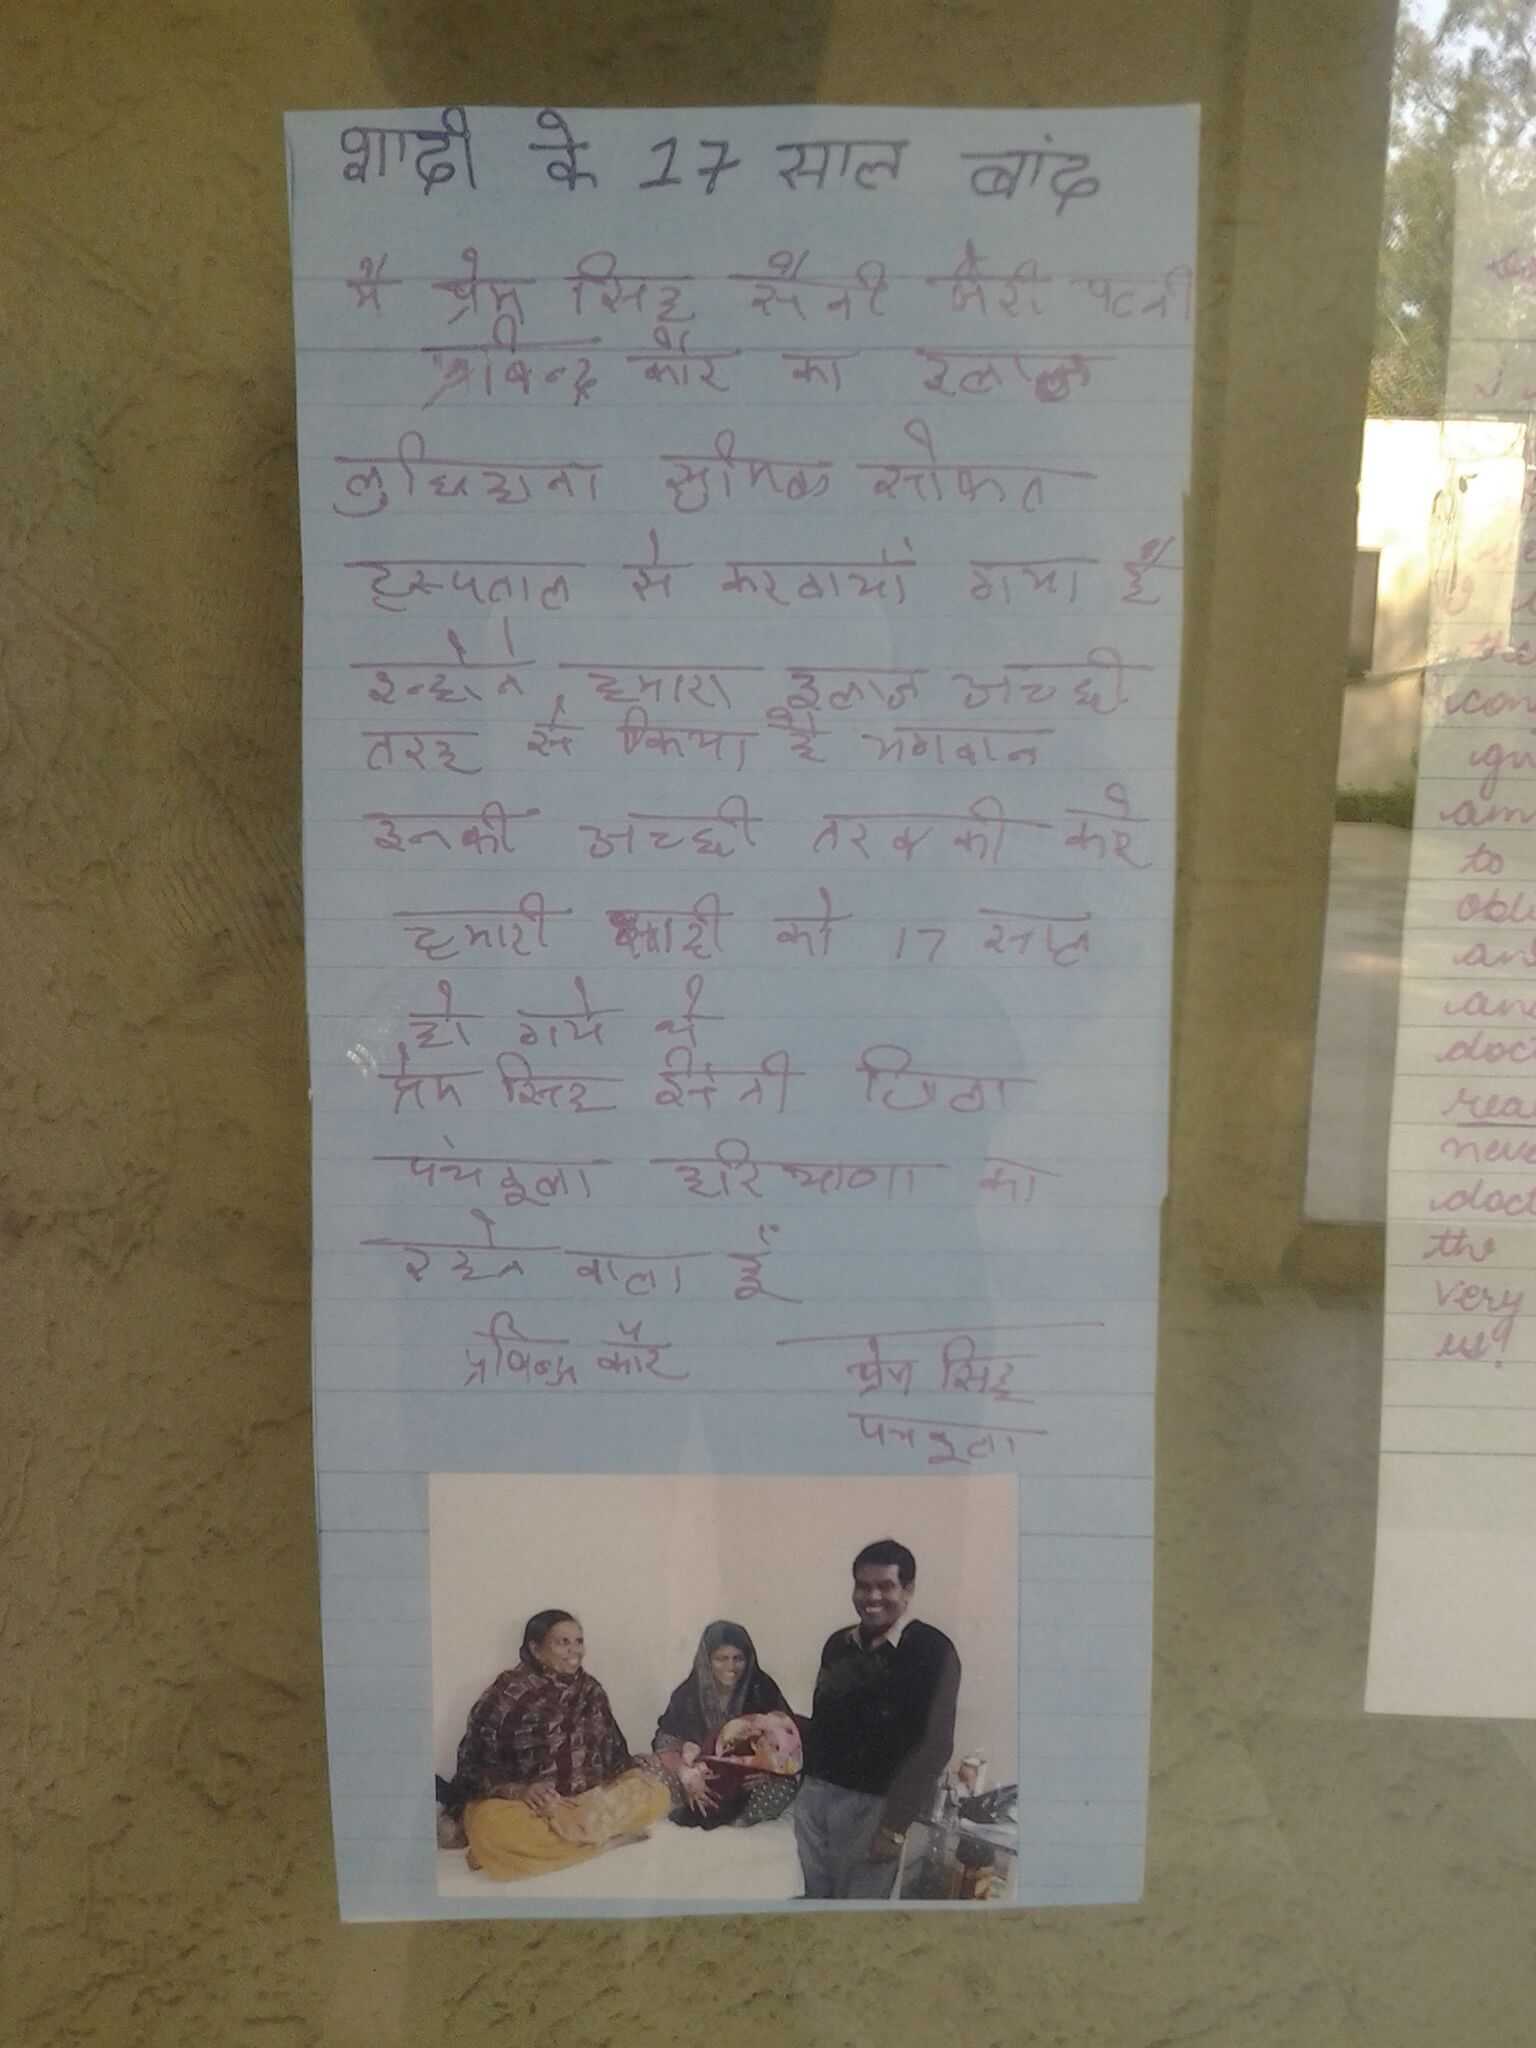 शादी के 17 साल बांद
मैं प्रेम सिह सैनी मेरी पत्नी
प्रविन्द्र कौर का इलाज
लुधियाना
हस्पताल से करवायां गया हैं
इन्होंने हमारा इलाज अच्छी
तरह से किया है भगवान
इनकी अच्छी तरक्की करे
हमारी शादी को 17 साल
हो गये थे
प्रेम सिह सैनी जिला
पंचकूला हरियाणा का
रहने वाला हूँ
प्रविन्द्र कौर
प्रेम सिह
पंचकूला
con
am
to
obl
and
doct
rea
neve
doct
the
very
us!